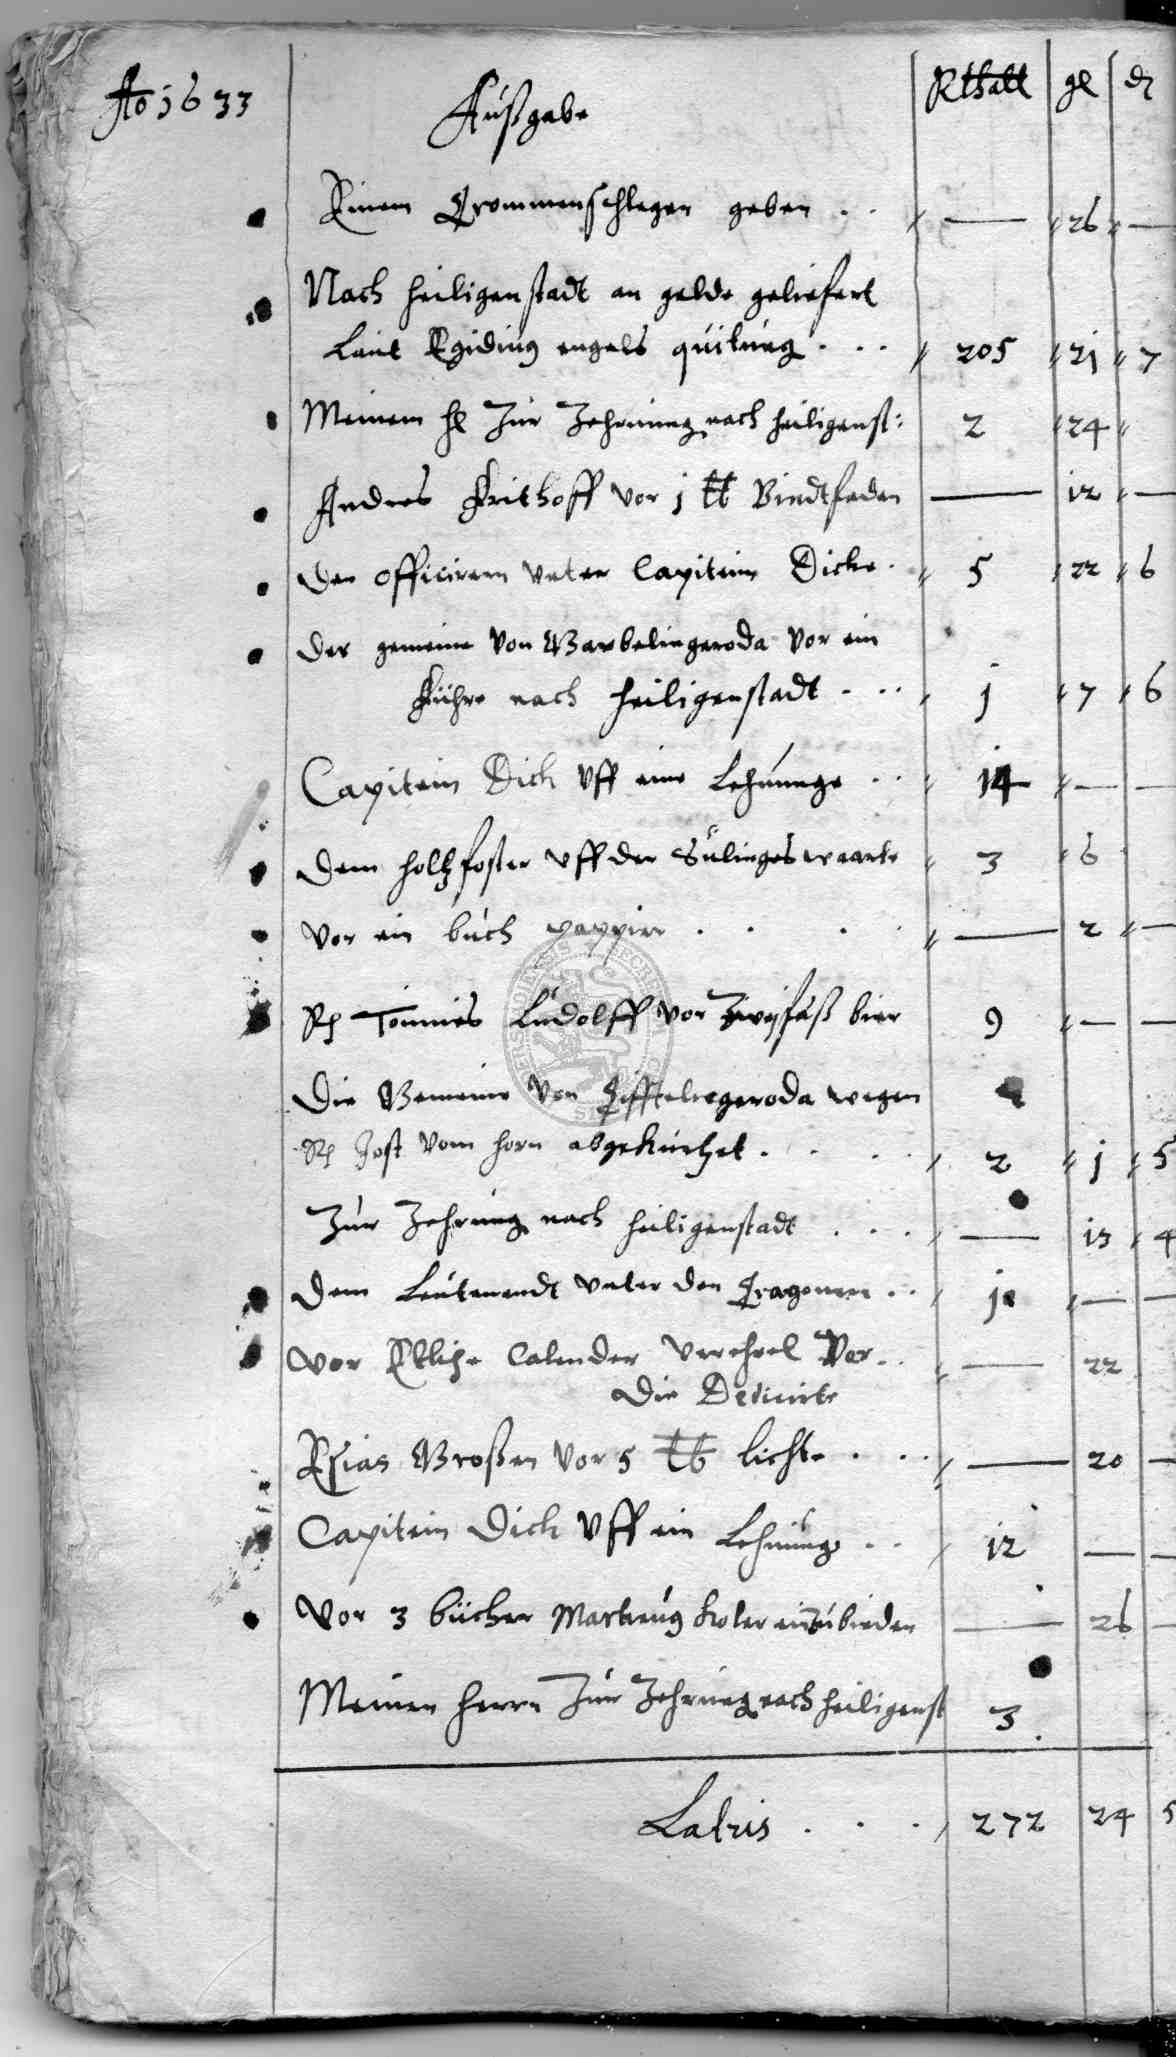 Ao 1633 Außgabe Rthall gl d
Einem Trommenschleger geben . . — 26 —
Nach heiligenstadt an gelde geliefert
Laut Egidius engels quitung . . . 205 21 7
Meinem hl Zur Zehrung nach heiligenst: 2 24
Andres Frithoff vor 1 ℔ Bindtfaden — 12 —
den officirern unter Capitein Dicke . 5 22 6
der gemeine von Warbelingeroda vor ein
Führe nach heiligenstadt . . . 1 7 6
Capitein Dick uff eine Lehnunge . . 14 — —
dem holtzfoster uff der Sülingeswaarte 3 6
vor ein buch pappier . . . . — 2 —
Tönnies Ludolff vor Zweyfaß bier 9 — —
Die Gemeine von Tifftelingeroda wegen
Jost vom horn abgekürtzet . . . . 2 1 5
Zur Zehrung nach heiligenstadt . . . — 13 4
dem Leutenandt unter den Tragonern . . 1 — —
vor Etliche Calender verehrel Vor . . — 22
Die
Esias Großen vor 5 ℔ lichte . . . — 20 —
Capitein Dick uff ein Lehnung . . 12 — —
Vor 3 bücher Marteug Koler einZubinden — 26 —
Meinen herrn Zur Zehrung nach heiligenst 3
Latris . . . 272 24 5